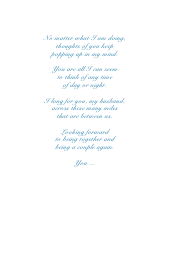 No matter what I am doing,
thoughts of you keep
popping up in my mind.
You are all I can seem
to think of any time
of day or night.
I long for you, my husband,
across these many miles
that are between us.
Looking forward
to being together and
being a couple again.
You....